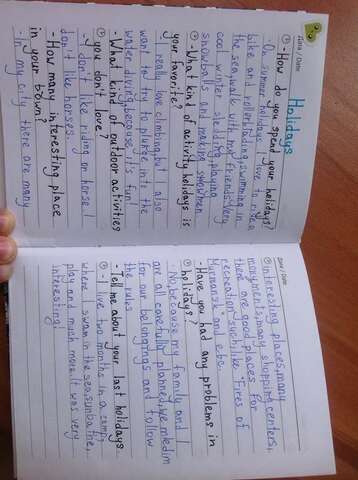 Дата / Date
Holidays
① - How do you spend your holidays?
- On summer holidays I love to ride a
bike and rollerblading, swimming in
the sea, walk with my friends. Very
cool winter sledding, playing
snowballs and making snowmen.
② - What kind of activity holidays is
your favorite?
- I really love climbing, but I also
want to try to plunge into the
water diving, because it's fun!
③ - What kind of outdoor activities
you don't love?
- I don't like riding on horse. I
don't like horses.
- How many interesting place
in your town?
- In my city there are many
Дата / Date
interesting places, many
monuments, many shopping centers,
there are good places for
recreation such, like "Fires of
Murmansk" and etc.
- Have you had any problems in
holidays?
- No, because my family and I
are all carefully planned, we me
for our belongings and follow
the rules
- Tell me about your last holidays.
- I live two months in a camp,
where I swam in the sea, sunbathe,
play and much more. It was very
interesting!